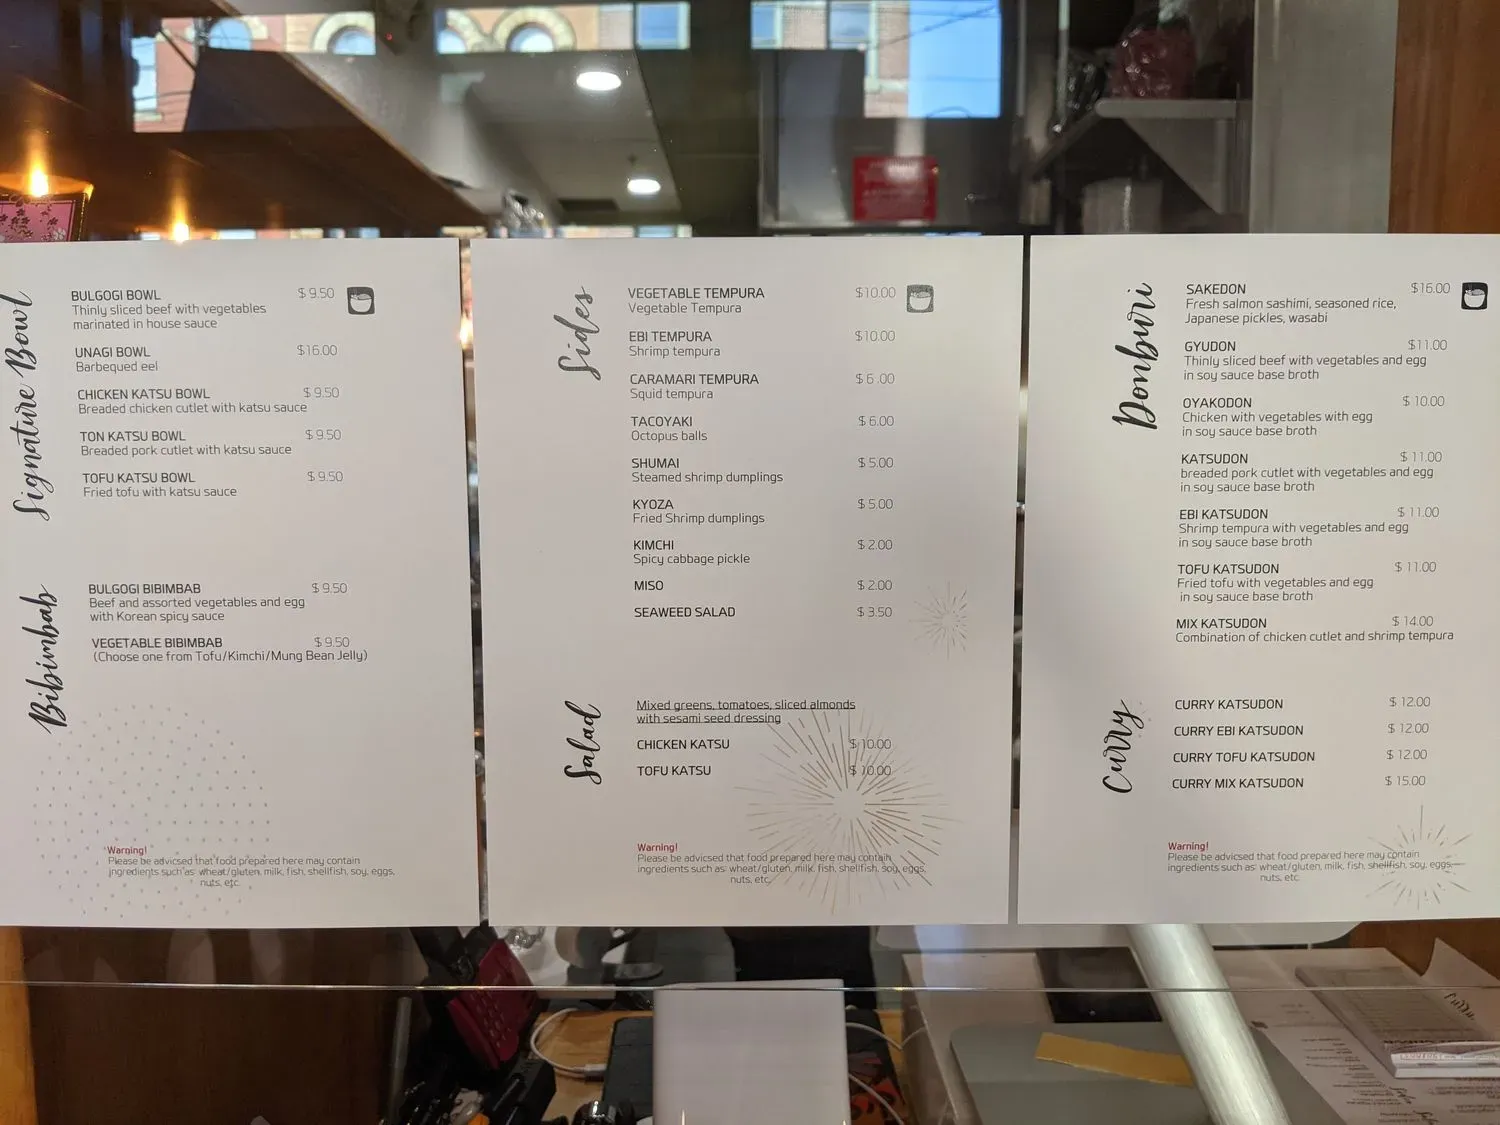 Signature Bowl
BULGOGI BOWL $ 9.50
Thinly sliced beef with vegetables
marinated in house sauce
UNAGI BOWL $16.00
Barbequed eel
CHICKEN KATSU BOWL $ 9.50
Breaded chicken cutlet with katsu sauce
TON KATSU BOWL $ 9.50
Breaded pork cutlet with katsu sauce
TOFU KATSU BOWL $ 9.50
Fried tofu with katsu sauce
Bibimbab
BULGOGI BIBIMBAB $ 9.50
Beef and assorted vegetables and egg
with Korean spicy sauce
VEGETABLE BIBIMBAB $ 9.50
(Choose one from Tofu/Kimchi/Mung Bean Jelly)
Warning!
Please be advicsed that food prepared here may contain
ingredients such as: wheat/gluten, milk, fish, shellfish, soy, eggs,
nuts, etc.
Sides
VEGETABLE TEMPURA $10.00
Vegetable Tempura
EBI TEMPURA $10.00
Shrimp tempura
CARAMARI TEMPURA $ 6 .00
Squid tempura
TACOYAKI $ 6.00
Octopus balls
SHUMAI $ 5.00
Steamed shrimp dumplings
KYOZA $ 5.00
Fried Shrimp dumplings
KIMCHI $ 2.00
Spicy cabbage pickle
MISO $ 2.00
SEAWEED SALAD $ 3.50
Salad
Mixed greens, tomatoes, sliced almonds
with sesami seed dressing
CHICKEN KATSU $ 10.00
TOFU KATSU $ 10.00
Warning!
Please be advicsed that food prepared here may contain
ingredients such as: wheat/gluten, milk, fish, shellfish, soy, eggs,
nuts, etc.
Donburi
SAKEDON $16.00
Fresh salmon sashimi, seasoned rice,
Japanese pickles, wasabi
GYUDON $11.00
Thinly sliced beef with vegetables and egg
in soy sauce base broth
OYAKODON $ 10.00
Chicken with vegetables with egg
in soy sauce base broth
KATSUDON $ 11.00
breaded pork cutlet with vegetables and egg
in soy sauce base broth
EBI KATSUDON $ 11.00
Shrimp tempura with vegetables and egg
in soy sauce base broth
TOFU KATSUDON $ 11.00
Fried tofu with vegetables and egg
in soy sauce base broth
MIX KATSUDON $ 14.00
Combination of chicken cutlet and shrimp tempura
Curry
CURRY KATSUDON $ 12.00
CURRY EBI KATSUDON $ 12.00
CURRY TOFU KATSUDON $ 12.00
CURRY MIX KATSUDON $ 15.00
Warning!
Please be advicsed that food prepared here may contain
ingredients such as: wheat/gluten, milk, fish, shellfish, soy, eggs,
nuts, etc.